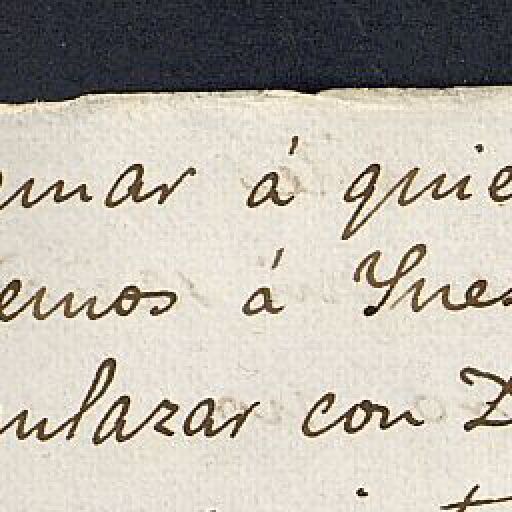 mar á quie
emos á Ynes
nlazar con D